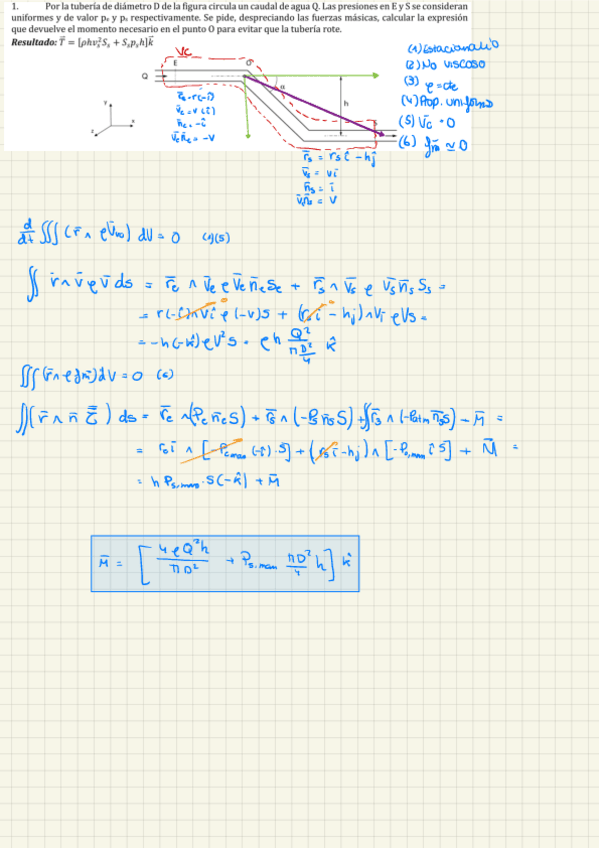 1. Por la tubería de diámetro D de la figura circula un caudal de agua Q. Las presiones en E y S se consideran
uniformes y de valor pₑ y pₛ respectivamente. Se pide, despreciando las fuerzas másicas, calcular la expresión
que devuelve el momento necesario en el punto O para evitar que la tubería rote.
Resultado: T⃗ = [ρhvₛ²Sₛ + Sₛpₛh]k⃗
VC
(1) Estacionario
E
O
(2) No viscoso
Q
α
(3) ρ = cte
r̄ₑ = r(-î)
h
(4) Prop. uniforme
v̄ₑ = v(î)
Y
n̄ₑ = -î
(5) v̄c = 0
v̄ₑn̄ₑ = -v
(6) f̄m ≃ 0
z
x
r̄s = rs î - hĵ
v̄s = vî
n̄s = î
v̄sn̄s = v
d/dt ∭ (r̄ ∧ ρv̄) dV = 0 (1)(5)
∬ r̄ ∧ v̄ ρ v̄ ds = r̄ₑ ∧ v̄ₑ ρ v̄ₑ n̄ₑ Sₑ + r̄s ∧ v̄s ρ v̄s n̄s Ss =
= r(-î) ∧ vî ρ(-v)S + (rs î - hj) ∧ vî ρvS =
= -h(-k̂)ρv²S = ρh Q²/(πD²/4) k̂
∭ (r̄ ∧ ρf̄m) dV = 0 (6)
∬ (r̄ ∧ n̄ τ̿) ds = r̄ₑ ∧ (Pₑ n̄ₑ S) + r̄s ∧ (-Ps n̄s S) + ∬ r̄s ∧ (-Patm n̄s S) - M̄ =
= rₑ ī ∧ [-Pe,man (-î) · S] + (rs î - hj) ∧ [-Ps,man î S] + M̄ =
= h Ps,man · S(-k̂) + M̄
M̄ = [ 4ρQ²h/πD² + Ps,man πD²/4 h ] k̂